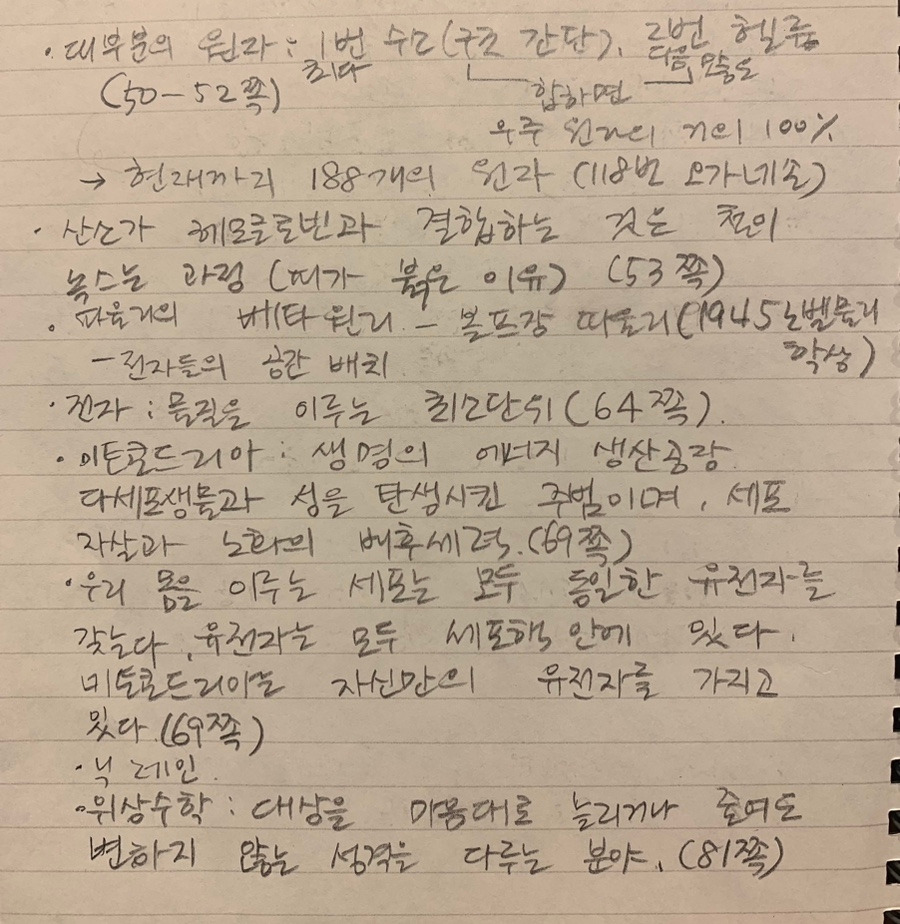 · 대부분의 원자 : 1번 수소(구조 간단), 2번 헬륨
최다 다음 많음
(50-52쪽) 합하면
우주 원자의 거의 100%
→ 현재까지 188개의 원자 (118번 오가네손)
· 산소가 헤모글로빈과 결합하는 것은 철의
녹스는 과정 (피가 붉은 이유) (53쪽)
· 파울리의 베타원리 - 볼프강 파울리(1945노벨물리
학상)
- 전자들의 공간 배치
· 전자 : 물질을 이루는 최소단위(64쪽).
· 미토콘드리아 : 생명의 에너지 생산공장
다세포생물과 성을 탄생시킨 주범이며, 세포
자살과 노화의 배후세력.(69쪽)
· 우리 몸을 이루는 세포는 모두 동일한 유전자를
갖는다. 유전자는 모두 세포핵 안에 있다.
미토콘드리아는 자신만의 유전자를 가지고
있다.(69쪽)
· 닉 레인.
· 위상수학 : 대상을 마음대로 늘리거나 줄여도
변하지 않는 성격을 다루는 분야. (81쪽)